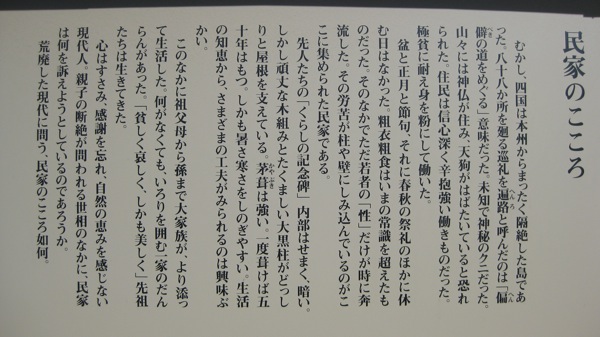 民家のこころ
むかし、四国は本州からまったく隔絶した島であ
った。八十八か所を廻る巡礼を遍路と呼んだのは「偏
僻の道をめぐる」意味だった。未知で神秘のクニだった。
山々には神仏が住み、天狗がはばたいていると恐れ
られた。住民は信心深く辛抱強い働きものだった。
極貧に耐え身を粉にして働いた。
盆と正月と節句、それに春秋の祭礼のほかに休
む日はなかった。粗衣粗食はいまの常識を超えたも
のだった。そのなかでただ若者の「性」だけが時に奔
流した。その労苦が柱や壁にしみ込んでいるのがこ
こに集められた民家である。
先人たちの「くらしの記念碑」内部はせまく、暗い。
しかし頑丈な木組みとたくましい大黒柱がどっし
りと屋根を支えている。茅葺は強い。一度葺けば五
十年はもつ。しかも暑さ寒さをしのぎやすい。生活
の知恵から、さまざまの工夫がみられるのは興味ぶ
かい。
このなかに祖父母から孫まで大家族が、より添っ
て生活した。何がなくても、いろりを囲む一家のだん
らんがあった。「貧しく哀しく、しかも美しく」先祖
たちは生きてきた。
心はすさみ、感謝を忘れ、自然の恵みを感じない
現代人。親子の断絶が問われる世相のなかに、民家
は何を訴えようとしているのであろうか。
荒廃した現代に問う、民家のこころ如何。